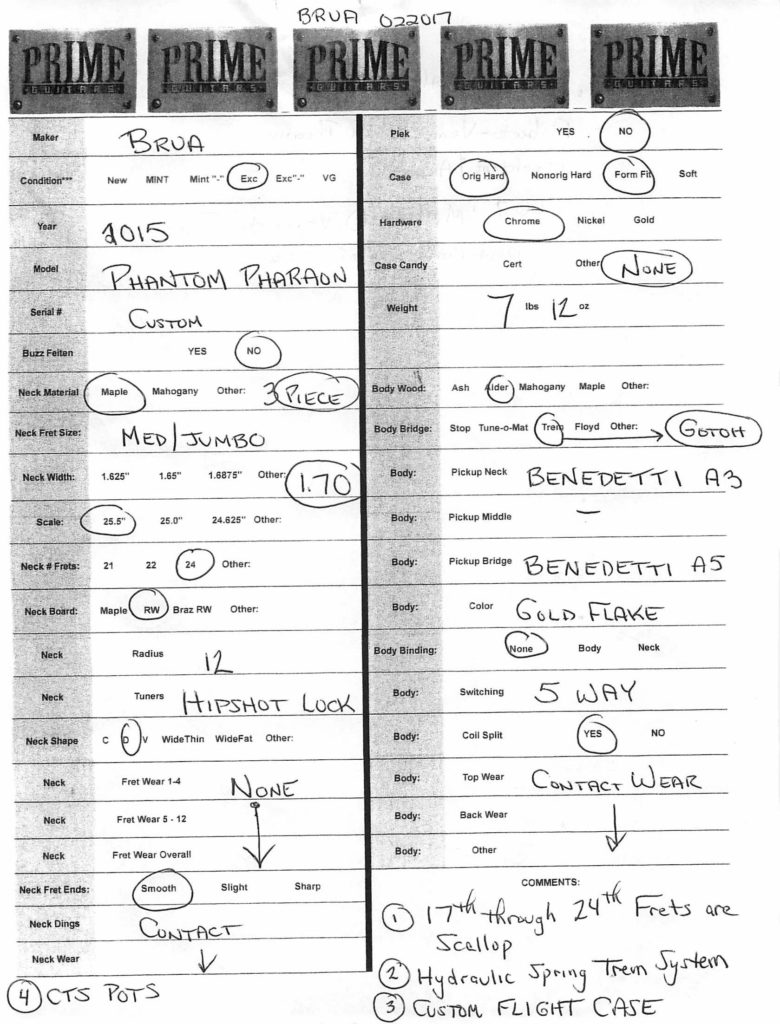 BRUA 022017
PRIME GUITARS PRIME GUITARS PRIME GUITARS PRIME GUITARS PRIME GUITARS
Maker BRUA
Condition*** New MINT Mint "-" Exc Exc"-" VG
Year 2015
Model PHANTOM PHARAOH
Serial # CUSTOM
Buzz Feiten YES NO
Neck Material Maple Mahogany Other: 3 PIECE
Neck Fret Size: MED/JUMBO
Neck Width: 1.625" 1.65" 1.6875" Other: 1.70
Scale: 25.5" 25.0" 24.625" Other:
Neck # Frets: 21 22 24 Other:
Neck Board: Maple RW Braz RW Other:
Neck Radius 12
Neck Tuners HIPSHOT LOCK
Neck Shape C D V WideThin WideFat Other:
Neck Fret Wear 1-4 NONE
Neck Fret Wear 5 - 12
Neck Fret Wear Overall
Neck Fret Ends: Smooth Slight Sharp
Neck Dings CONTACT
Neck Wear
④ CTS POTS
Plek YES NO
Case Orig Hard Nonorig Hard Form Fit Soft
Hardware Chrome Nickel Gold
Case Candy Cert Other NONE
Weight 7 lbs 12 oz
Body Wood: Ash Alder Mahogany Maple Other:
Body Bridge: Stop Tune-o-Mat Trem Floyd Other: GOTOH
Body: Pickup Neck BENEDETTI A3
Body: Pickup Middle —
Body: Pickup Bridge BENEDETTI A5
Body: Color GOLD FLAKE
Body Binding: None Body Neck
Body: Switching 5 WAY
Body: Coil Split YES NO
Body: Top Wear CONTACT WEAR
Body: Back Wear
Body: Other
COMMENTS:
① 17th through 24th Frets are
Scallop
② Hydraulic Spring Trem System
③ CUSTOM FLIGHT CASE